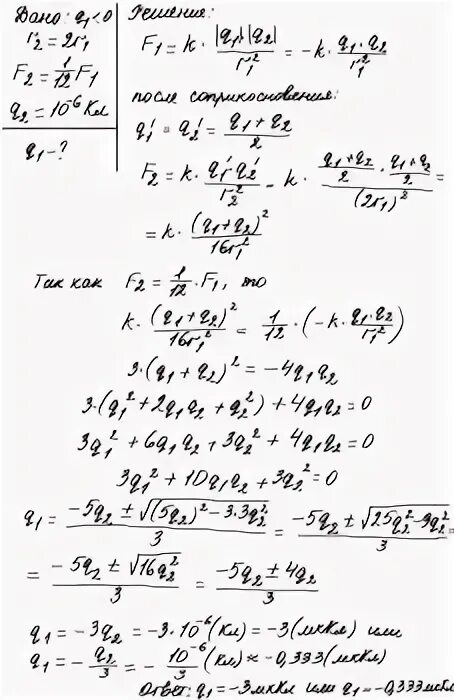 Дано: q₁<0
r₂=2r₁
F₂=1/12 F₁
q₂=10⁻⁶ Кл
q₁-?
Решения:
F₁=k·|q₁|·|q₂|/r₁²=-k·q₁·q₂/r₁²
после соприкосновения:
q₁'=q₂'=(q₁+q₂)/2
F₂=k·q₁'q₂'/r₂²=k·((q₁+q₂)/2·(q₁+q₂)/2)/(2r₁)²=
=k·(q₁+q₂)²/16r₁²
Так как F₂=1/12·F₁, то
k·(q₁+q₂)²/16r₁²=1/12·(-k·q₁·q₂/r₁²)
3·(q₁+q₂)²=-4q₁q₂
3·(q₁²+2q₁q₂+q₂²)+4q₁q₂=0
3q₁²+6q₁q₂+3q₂²+4q₁q₂=0
3q₁²+10q₁q₂+3q₂²=0
q₁=(-5q₂±√((5q₂)²-3·3q₂²))/3=(-5q₂±√(25q₂²-9q₂²))/3=
=(-5q₂±√(16q₂²))/3=(-5q₂±4q₂)/3
q₁=-3q₂=-3·10⁻⁶(Кл)=-3(мкКл) или
q₁=-q₂/3=-10⁻⁶/3(Кл)≈-0,333(мкКл)
Ответ: q₁=-3мкКл или q₁=-0,333мкКл